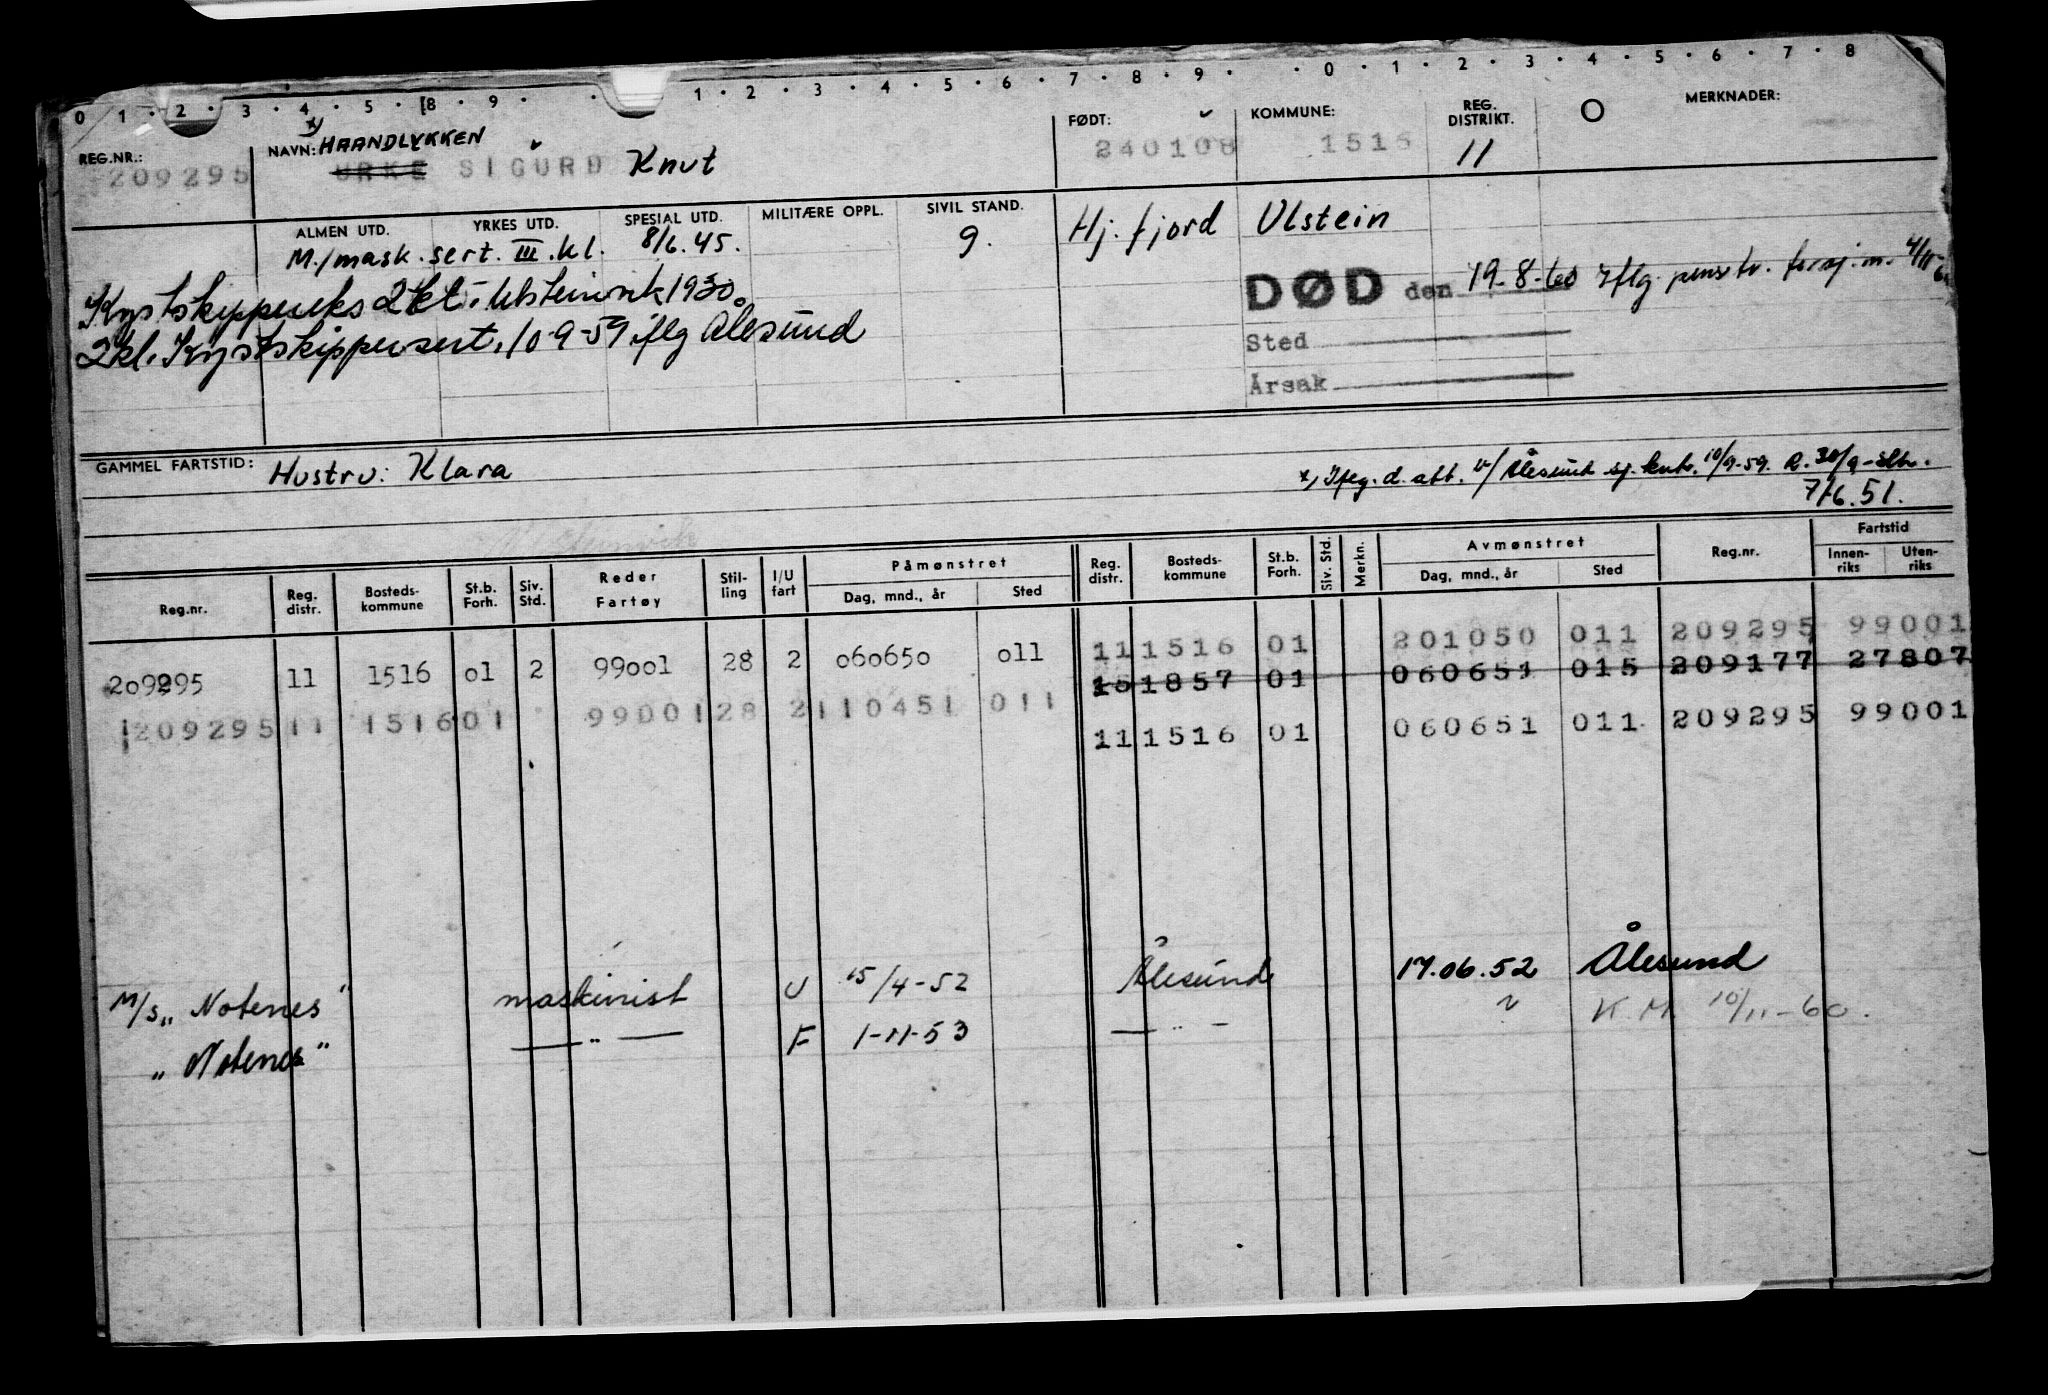 0 1 · 2 · 3 · 4 · 5 · 8 · 9 · · 1 · 2 · 3 · 4 · 5 · 6 · 7 · 8 · 9 · · 0 · 1 · 2 · 3 · 4 · 5 · 6 · 7 · 8
REG.NR.: NAVN: x) HAANDLYKKEN FØDT: KOMMUNE: REG. DISTRIKT. O MERKNADER:
209295 URKE SIGURD Knut 240108 1516 11
ALMEN UTD. YRKES UTD. SPESIAL UTD. MILITÆRE OPPL. SIVIL STAND.
M./mask. sert. III. kl. 8/6.45. g. Hj. fjord Ulstein
Kystskippereks 2kl. i Ulsteinvik 1930.
DØD den 19-8-60 iflg. penstr. 4/11-
2kl. Kystskippersert. 10-9-59 iflg Ålesund
Sted
Årsak
GAMMEL FARTSTID: Hustru: Klara
x) Iflg. d. att. Ålesund sj. kntr. 10/9-59. R. 30/9-
7/6.51.
Reg.nr. Reg. distr. Bosteds-kommune St.b. Forh. Siv. Std. Reder Fartøy Stil-ling I/U fart Påmønstret Dag, mnd., år Sted Reg. distr. Bosteds-kommune St.b. Forh. Siv. Std. Merkn. Avmønstret Dag, mnd., år Sted Reg.nr. Fartstid Innen-riks Uten-riks
209295 11 1516 01 2 99001 28 2 060650 011 11 1516 01 201050 011 209295 99001
15 1857 01 060651 015 209177 27807
209295 11 1516 01 99001 28 2 110451 011 11 1516 01 060651 011 209295 99001
M/s „Notenes" maskinist U 15/4-52 Ålesund 17.06.52 Ålesund
„Notenes" — " — F 1-11-53 — " — K.M. 10/11-60.